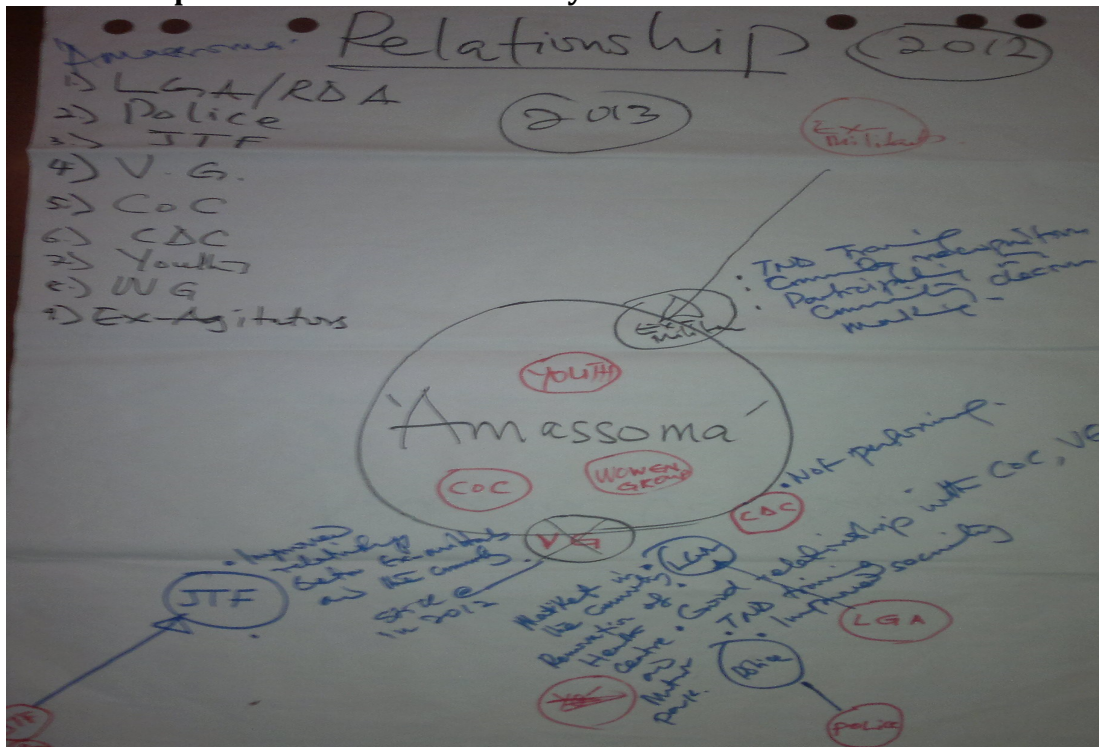 Relationship
2012
2013
Amassoma
1) LGA/RDA
2) Police
3) JTF
4) V.G.
5) CoC
6) CDC
7) Youths
8) WG
9) Ex-Agitators
Ex-
Militants
• TND Training
• Community recognition
• Participating in
Community decision
making
YOUTH
'Amassoma'
COC
WOMEN
GROUP
CDC
• Not performing.
VG
JTF
• Improved
relationship
btw Ex-militants
and the community
since
in 2012
LGA
• Market in
the Community
• Renovation of
Health
centre
and
Motor
park.
• Good relationship with CoC, VG
• TND training
• Improved security
LGA
Police
Police
JTF